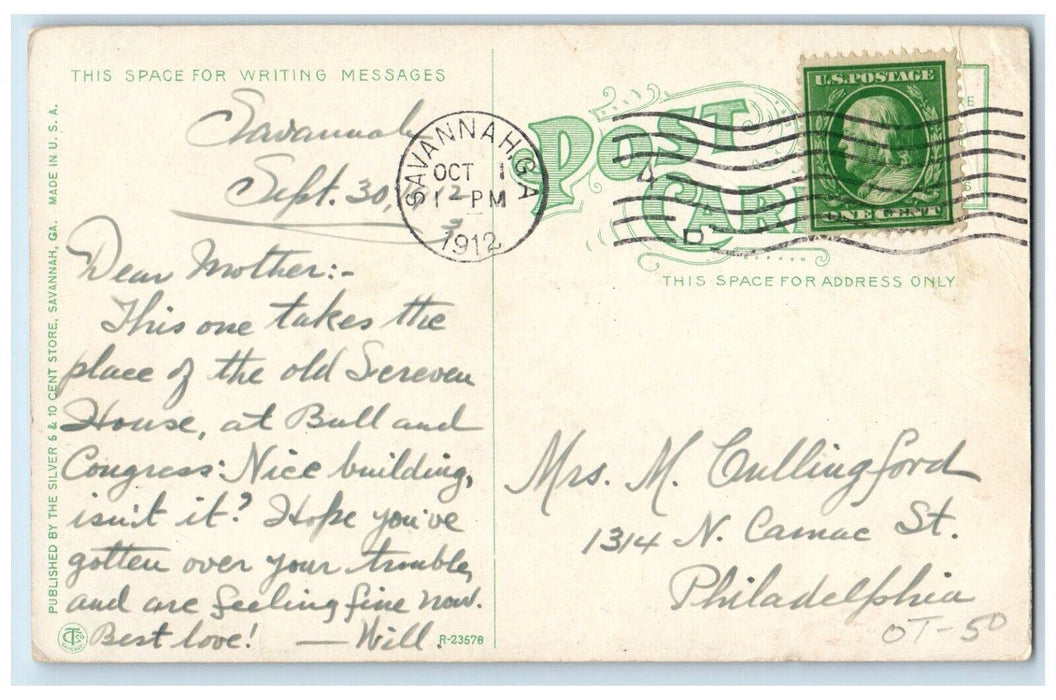 THIS SPACE FOR WRITING MESSAGES
Savannah
Sept. 30, 12
Dear Mother:-
This one takes the
place of the old Screven
House, at Bull and
Congress: Nice building,
isn't it? Hope you've
gotten over your trouble,
and are feeling fine now.
Best love! — Will.
R-23578
PUBLISHED BY THE SILVER 5 & 10 CENT STORE, SAVANNAH, GA. MADE IN U. S. A.
SAVANNAH, GA
OCT 1
12 PM
1912
POST
CARD
U.S. POSTAGE
ONE CENT
THIS SPACE FOR ADDRESS ONLY
Mrs. M. Cullingford
1314 N. Camac St.
Philadelphia
OT-50